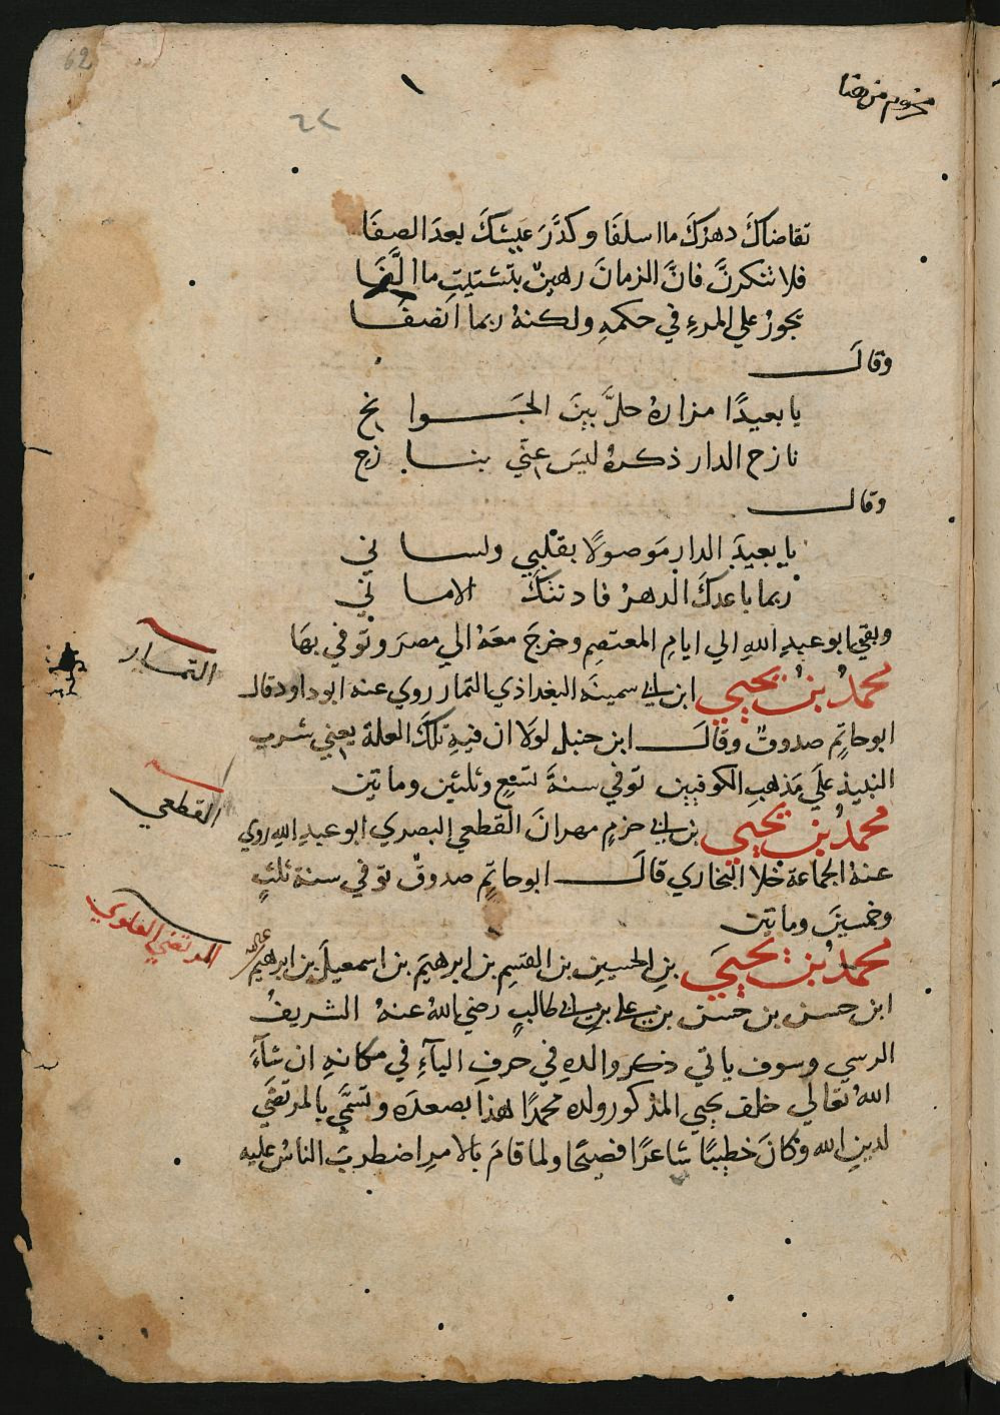 62
مخروم من هنا
٦٢
تقاضاكَ دهرُكَ ما اسلفَا وكدَّرَ عَيشكَ بعدَ الصفَا
فلا تنكرنَّ فانَّ الزمانَ رهينٌ بتشتيتِ ما الَّفَا
يجورُ علي المرءِ في حكمهِ ولكنهُ ربما انصفُا
وقالَ
يا بعيدًا مزارهُ حلَّ بينَ الجَوانح
نازح الدار ذكرهُ ليسَ عنّي بنازحِ
وقال
يا بعيدَ الدار مَوصولًا بقلْبي ولساني
ربما باعدكَ الدهرُ فادنتكَ الاماني
وبقي ابو عبدِ اللهِ الي ايامِ المعتصِم وخرجَ معَهُ الي مصرَ وتوفي بهَا
التمار
محمدُ بنُ يحيي ابن ابي سمينَه البغداذي التمار روي عنه ابو داود قال
ابو حاتِم صدوقٌ وقالَ ابن حنبل لولَا ان فيهِ تلكَ العلة يعني شرب
النبيذ علَي مَذهبِ الكوفيين توفي سنةَ تسْعٍ وثلثين وماتين
القطعي
محمدُ بنُ يحيي بن ابي حزمٍ مهرانَ القطعي البصري ابو عبدِ اللهِ روي
عنهُ الجماعة خلا البخاري قالَ ابو حاتمٍ صدوقٌ توفي سنة ثلثٍ
وخمسينَ وماتين
المرتضي العلوي
محمدُ بنُ يحييَ بنِ الحسينِ بن القسِمِ بن ابرهيمَ بن اسمعيلَ بن ابرهيم
ابن حسن بن حسن بن علي بن ابي طالبٍ رضي اللهُ عنهُ الشريفُ
الرسي وسوف ياتي ذكر والدهِ في حرفِ اليآءِ في مكانهِ ان شآءَ
اللهُ تعالي خلف يحيي المذكور ولده محمدًا هذا بصعدَه وتسمَّي بالمرتضَي
لدينِ الله وكانَ خطيبًا شاعرًا فصيحًا ولما قامَ بالامرِ اضطربَ الناسُ عليه